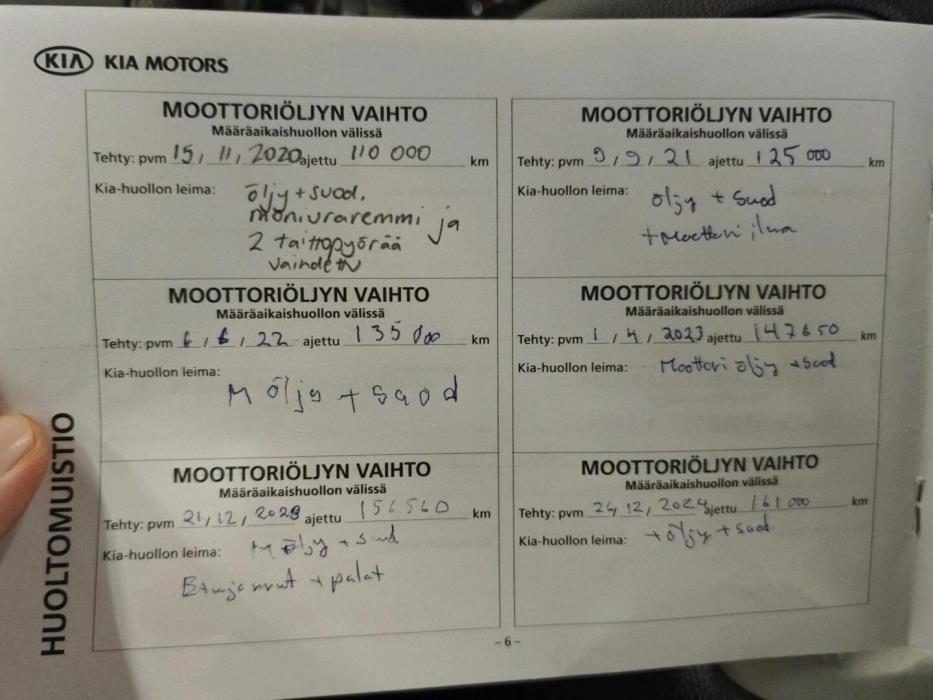 KIA KIA MOTORS
MOOTTORIÖLJYN VAIHTO
Määräaikaishuollon välissä
Tehty: pvm 15, 11, 2020 ajettu 110 000 km
Kia-huollon leima: öljy + suod.
moniuraremmi ja
2 taittopyörää
vaihdettu
MOOTTORIÖLJYN VAIHTO
Määräaikaishuollon välissä
Tehty: pvm 9, 9, 21 ajettu 125 000 km
Kia-huollon leima: öljy + suod
+ Moottori ilma
MOOTTORIÖLJYN VAIHTO
Määräaikaishuollon välissä
Tehty: pvm 6, 6, 22 ajettu 135 000 km
Kia-huollon leima:
M öljy + suod
MOOTTORIÖLJYN VAIHTO
Määräaikaishuollon välissä
Tehty: pvm 1, 4, 2023 ajettu 147650 km
Kia-huollon leima: Moottori öljy + suod
MOOTTORIÖLJYN VAIHTO
Määräaikaishuollon välissä
Tehty: pvm 21, 12, 2023 ajettu 156560 km
Kia-huollon leima: M öljy + suod
Etujarrut + palat
MOOTTORIÖLJYN VAIHTO
Määräaikaishuollon välissä
Tehty: pvm 24, 12, 2024 ajettu 161 000 km
Kia-huollon leima: + öljy + suod
HUOLTOMUISTIO
– 6 –